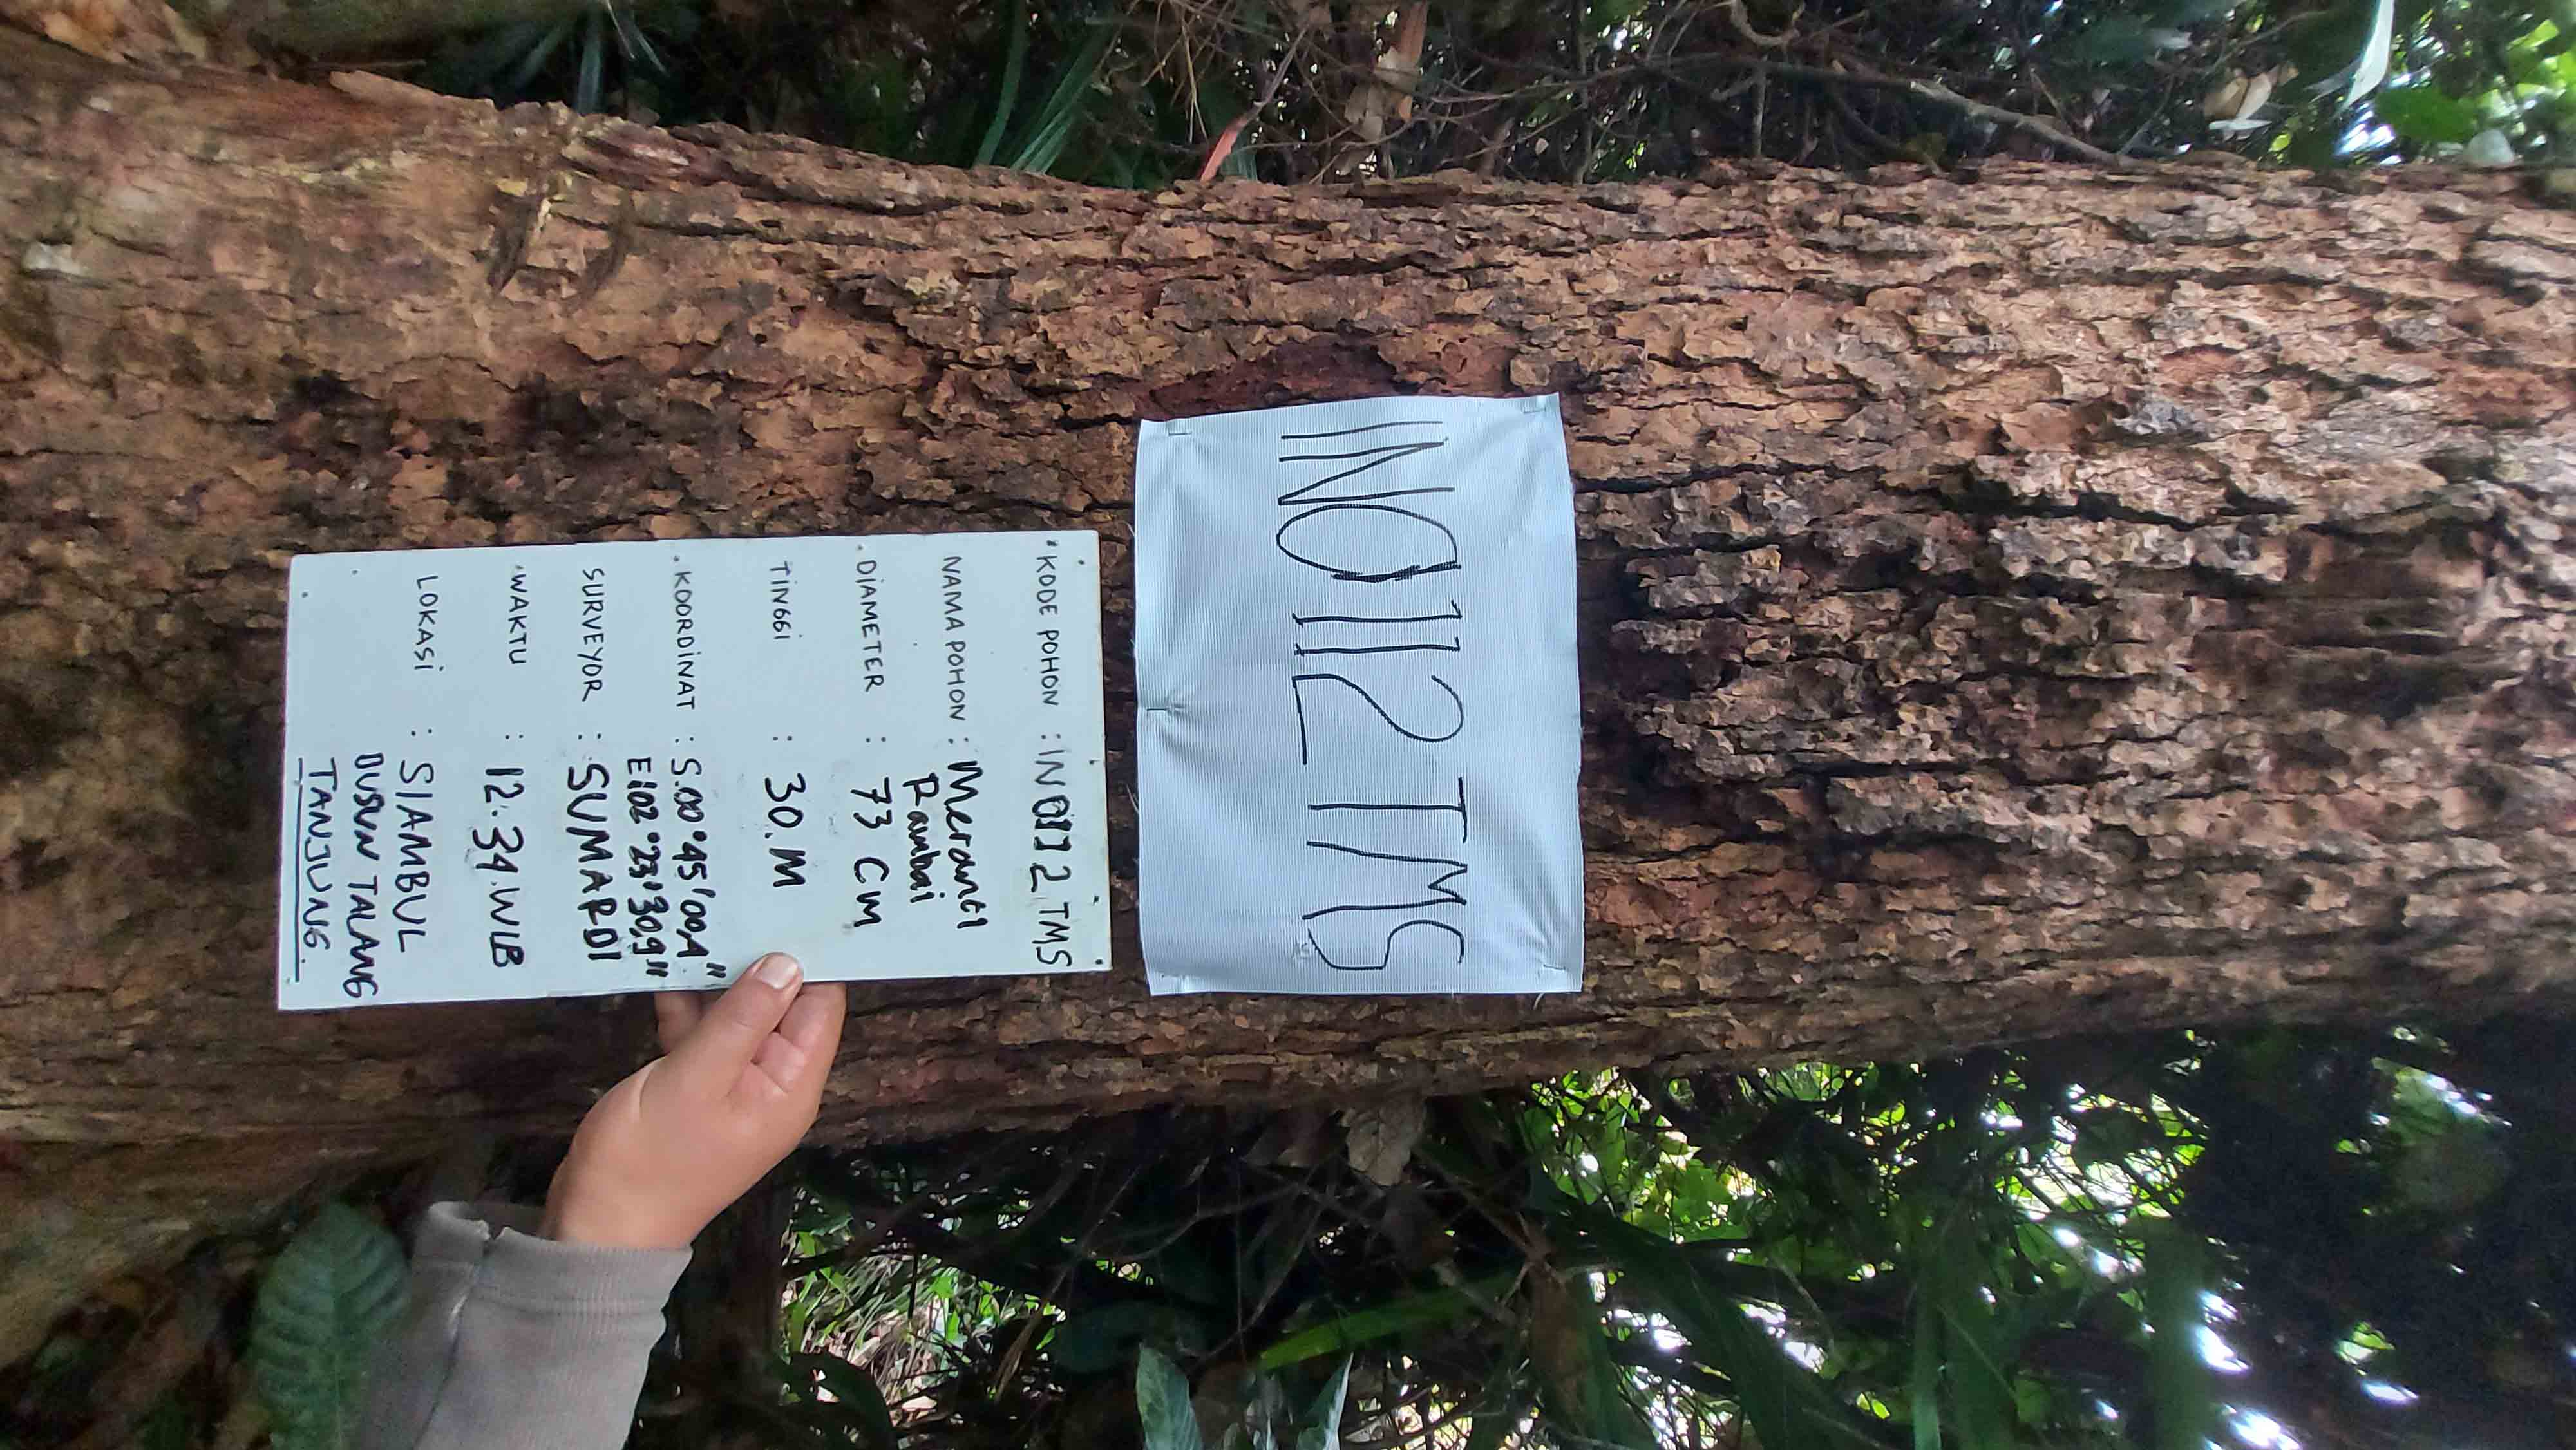 IN0112 TMS
KODE POHON : IN 0112 TMS
NAMA POHON : Meranti
Rambai
DIAMETER : 73 CM
TINGGI : 30.M
KOORDINAT : S.00°45'00,4"
E102°23'30,9"
SURVEYOR : SUMARDI
WAKTU : 12.34.WIB
LOKASI : SIAMBUL
DUSUN TALANG
TANJUNG.